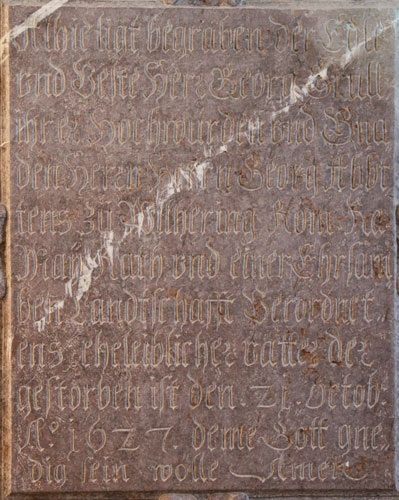 Alhie ligt begraben der Edle
und Veste Herr Georg Grüll
ihrer Hochwürden und Gna
den Herrn Herrn Georg Abb
tens zu Wilhering Röm: Kay:
Rath und einer Ehrsam
ben Landtschafft Verordnet
ens eheleiblicher vatter der
gestorben ist den . 21 . Octob:
A⁰ 1627. deme Gott gne
dig sein wölle Amen